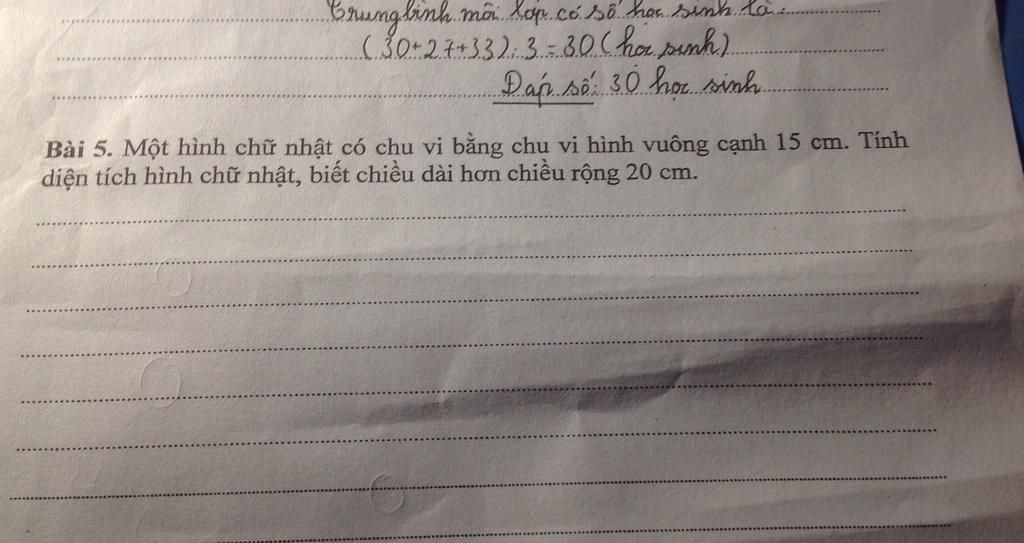 Trung bình mỗi lớp có số học sinh là:
(30+27+33):3=30(học sinh)
Đáp số: 30 học sinh
Bài 5. Một hình chữ nhật có chu vi bằng chu vi hình vuông cạnh 15 cm. Tính
diện tích hình chữ nhật, biết chiều dài hơn chiều rộng 20 cm.